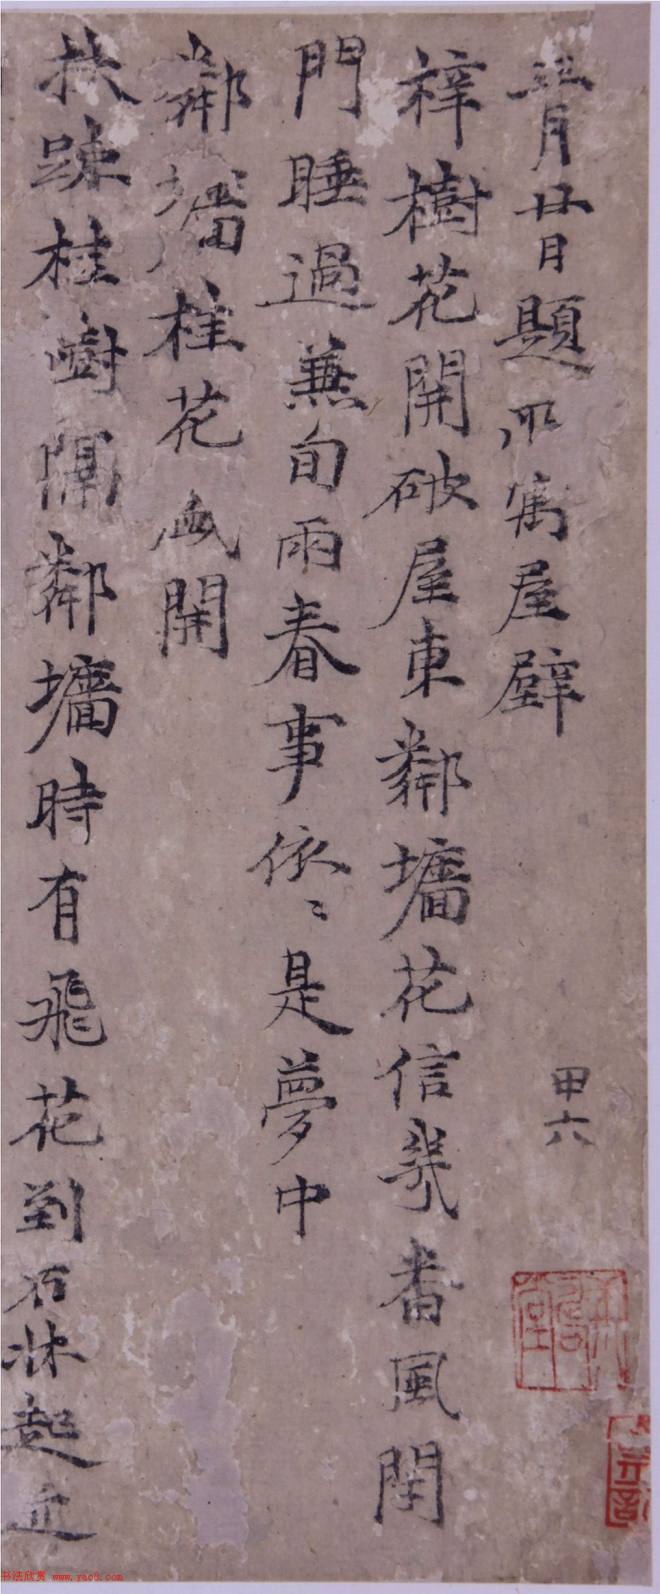 五月廿日題所寓屋壁
梓樹花開破屋東鄰墻花信幾番風閉
門睡過兼旬雨春事依〻是夢中
鄰墻桂花盛開
扶踈桂樹隔鄰墻時有飛花到石牀起近
甲六
书法欣赏 www.yac8.com